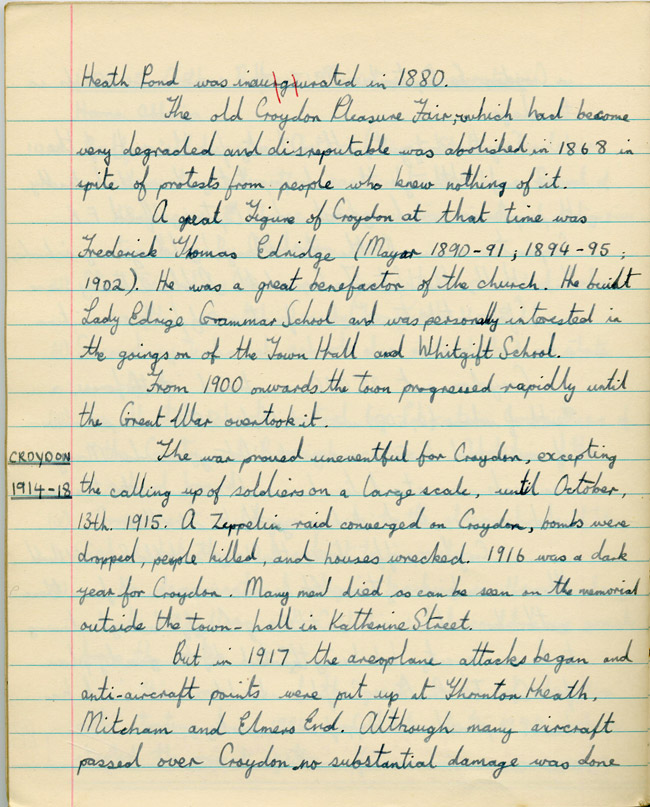 Heath Pond was inaurgurated in 1880.
The old Croydon Pleasure Fair, which had become
very degraded and disreputable was abolished in 1868 in
spite of protests from people who knew nothing of it.
A great Figure of Croydon at that time was
Frederick Thomas Edridge (Mayor 1890-91; 1894-95;
1902). He was a great benefactor of the church. He built
Lady Edrige Grammar School and was personally interested in
the goings on of the Town Hall and Whitgift School.
From 1900 onwards the town progressed rapidly until
the Great War overtook it.
CROYDON
1914-18
The war proved uneventful for Croydon, excepting
the calling up of soldiers on a large scale, until October,
13th. 1915. A Zeppelin raid converged on Croydon, bombs were
dropped, people killed, and houses wrecked. 1916 was a dark
year for Croydon. Many men died as can be seen on the memorial
outside the town-hall in Katherine Street.
But in 1917 the areoplane attacks began and
anti-aircraft points were put up at Thornton Heath,
Mitcham and Elmers End. Although many aircraft
passed over Croydon no substantial damage was done